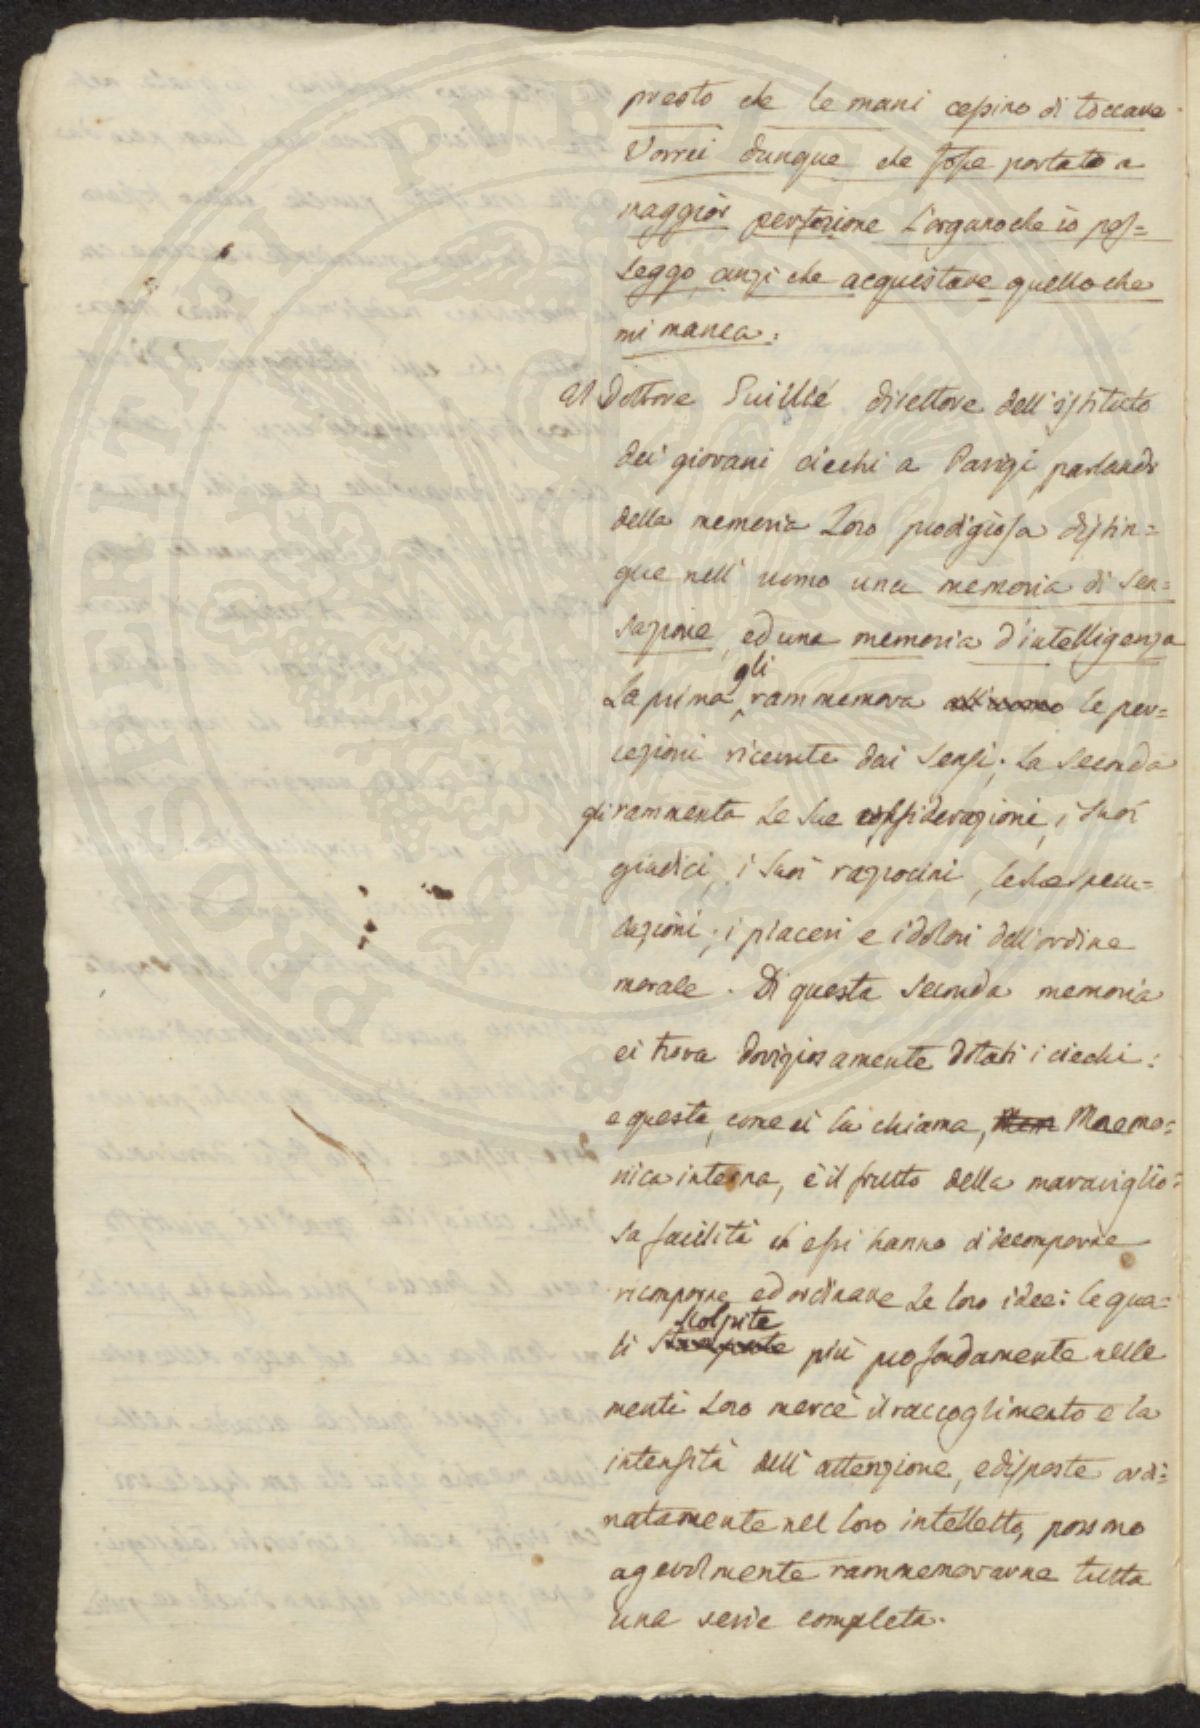 presto che le mani cessino di toccare
Vorrei dunque che fosse portato a
maggior perfezione l'organo che io pos=
seggo, anzi che acquistare quello che
mi manca.
Il Dottore Guillié direttore dell'istituto
dei giovani ciechi a Parigi parlando
della memoria loro prodigiosa distin=
gue nell'uomo una memoria di sen=
sazione, ed una memoria d'intelligenza
La prima gli rammemora all'uomo le per=
cezioni ricevute dai sensi; la seconda
gli rammenta le sue considerazioni, i suoi
giudici, i suoi raziocini, le sue specu=
lazioni; i piaceri e i dolori dell'ordine
morale. Di questa seconda memoria
ei trova dovigiosamente dotati i ciechi:
e questa, come ei la chiama, Mem Mnemo=
nica interna, è il frutto della maraviglio=
sa facilità ch'essi hanno di decomporre
ricomporre ed ordinare le loro idee: le qua=
li scolpite più profondamente nelle
menti loro mercè il raccoglimento e la
intensità dell'attenzione, e disposte ordi=
natamente nel loro intelletto, possono
agevolmente rammemorarne tutta
una serie completa.